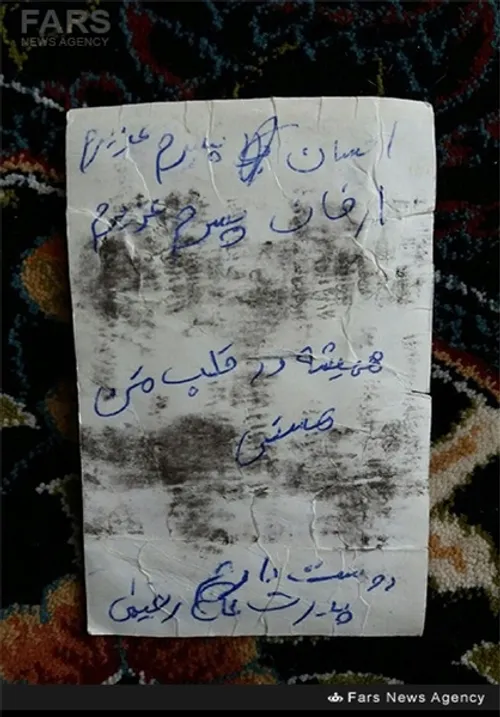 FARS
NEWS AGENCY
احسان پسرم عزیزم
ارفان پسرم عزیزم
همیشه در قلب من
هستی
دوست دارم
پدرت
Fars News Agency